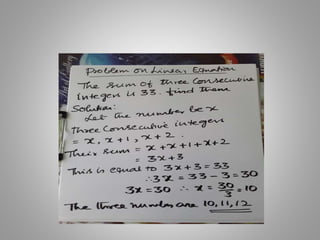 Problem on Linear Equation
The sum of three consecutive
integers is 33. find them
Solution:
Let the number be x
three consecutive integers
= x, x+1, x+2.
Their sum = x+x+1+x+2
= 3x+3
This is equal to 3x+3=33
∴3x = 33-3=30
3x=30 ∴ x = 30/3 = 10
The three number are 10,11,12